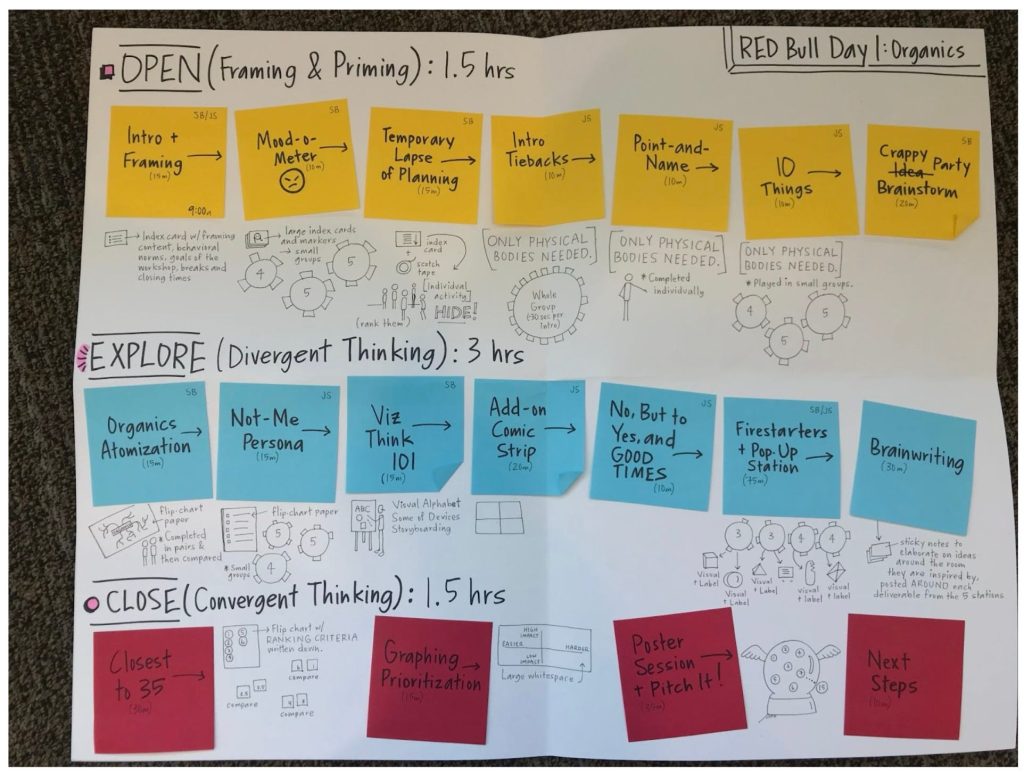 RED Bull Day 1: Organics
OPEN (Framing & Priming): 1.5 hrs
SB/JS
Intro +
Framing
(15m)
9:00a
SB
Mood-o-
Meter
(10m)
SB
Temporary
Lapse
of Planning
(15m)
JS
Intro
Tiebacks
(10m)
JS
Point-and-
Name
(10m)
JS
10
Things
(10m)
SB
Crappy Party
Idea
Brainstorm
(20m)
Index card w/ framing
content, behavioral
norms, goals of the
workshop, breaks and
closing times
large index cards
and markers
small
groups
4
5
5
index
card
+
scotch
tape
[individual
activity]
HIDE!
(rank them)
[ONLY PHYSICAL
BODIES NEEDED.]
Whole
Group
(~30 sec per
intro)
[ONLY PHYSICAL
BODIES NEEDED.]
* Completed
individually
[ONLY PHYSICAL
BODIES NEEDED.]
* Played in small groups.
4
5
5
EXPLORE (Divergent Thinking): 3 hrs
SB
Organics
Atomization
(15m)
JS
Not-Me
Persona
(15m)
SB
Viz
Think
101
(15m)
JS
Add-on
Comic
Strip
(20m)
JS
No, But to
Yes, and
GOOD
TIMES
(10m)
SB/JS
Firestarters
+ Pop-Up
Station
(75m)
Brainwriting
(30m)
Flip-chart
paper
* Completed
in pairs &
then compared
Flip-chart paper
5
5
4
* Small
groups
ABC
Visual Alphabet
Some of Devices
Storyboarding
3
3
4
4
Visual
+ Label
Visual
+ Label
Visual
+ Label
Visual
+ label
Visual
+ label
sticky notes to
elaborate on ideas
around the room
they are inspired by,
posted AROUND each
deliverable from the 5 stations
CLOSE (Convergent Thinking): 1.5 hrs
Closest
to 35
(30m)
Flip chart w/
RANKING CRITERIA
written down.
compare
compare
compare
Graphing
Prioritization
(15m)
HIGH
IMPACT
EASIER
HARDER
LOW
IMPACT
Large whitespace
Poster
Session
+ Pitch It!
(20m)
Next
Steps
(10m)